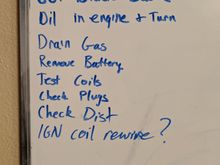 Oil in engine & Turn
Drain Gas
Remove Battery
Test Coils
Check Plugs
Check Dist
IGN coil rewire?